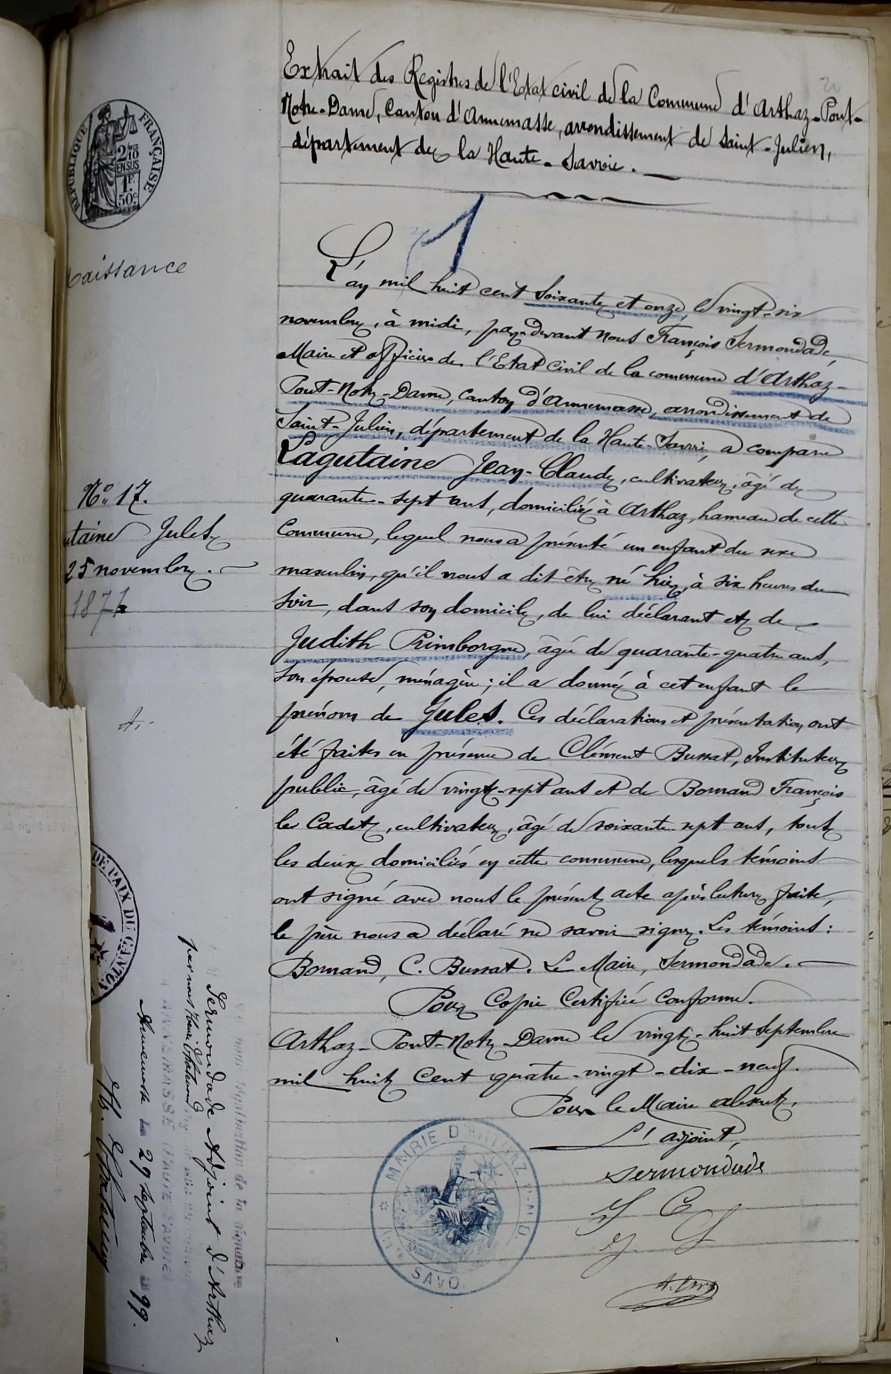 Extrait des Registres de l'Etat civil de la Commune d'Arthaz-Pont-
Notre-Dame, Canton d'Annemasse, arrondissement de Saint-Julien,
département de la Haute-Savoie.
RÉPUBLIQUE FRANÇAISE
2/10 EN SUS
1F 50c
1
Naissance
L'an mil huit cent soixante et onze, le vingt-six
novembre, à midi, par devant nous François Sermondade
Maire et officier de l'Etat Civil de la commune d'Arthaz-
Pont-Notre-Dame, canton d'Annemasse, arrondissement de
Saint-Julien, département de la Haute-Savoie, a comparu
Lagutaine Jean-Claude, cultivateur, âgé de
quarante-sept ans, domicilié à Arthaz, hameau de cette
Commune, lequel nous a présenté un enfant du sexe
masculin, qu'il nous a dit être né hier, à six heures du
soir, dans son domicile, de lui déclarant et de
Judith Primborgne, âgée de quarante-quatre ans,
son épouse, ménagère; il a donné à cet enfant le
prénom de Jules. Ces déclarations et présentation ont
été faites en présence de Clément Bussat, Instituteur
public, âgé de vingt-sept ans et de Bornand François
le Cadet, cultivateur, âgé de soixante sept ans, tous
les deux domiciliés en cette commune, lesquels témoins
ont signé avec nous le présent acte après lecture faite,
le père nous a déclaré ne savoir signer. Les témoins:
Bornand, C. Bussat. Le Maire, Sermondade.
Pour Copie Certifiée Conforme.
Arthaz-Pont-Notre-Dame le vingt-huit septembre
mil huit cent quatre-vingt-dix-neuf.
Pour le Maire absent,
L'adjoint,
Sermondade
No 17.
utaine Jules
25 novembre.
1871
MAIRIE D'ARTHAZ P.N.D.
SAVO
DE PAIX DU CANTON
légalisation de la signature
Sermondade Adjoint d'Arthaz
par nous
ANNEMASSE (HAUTE-SAVOIE)
Annemasse le 29 septembre 99.